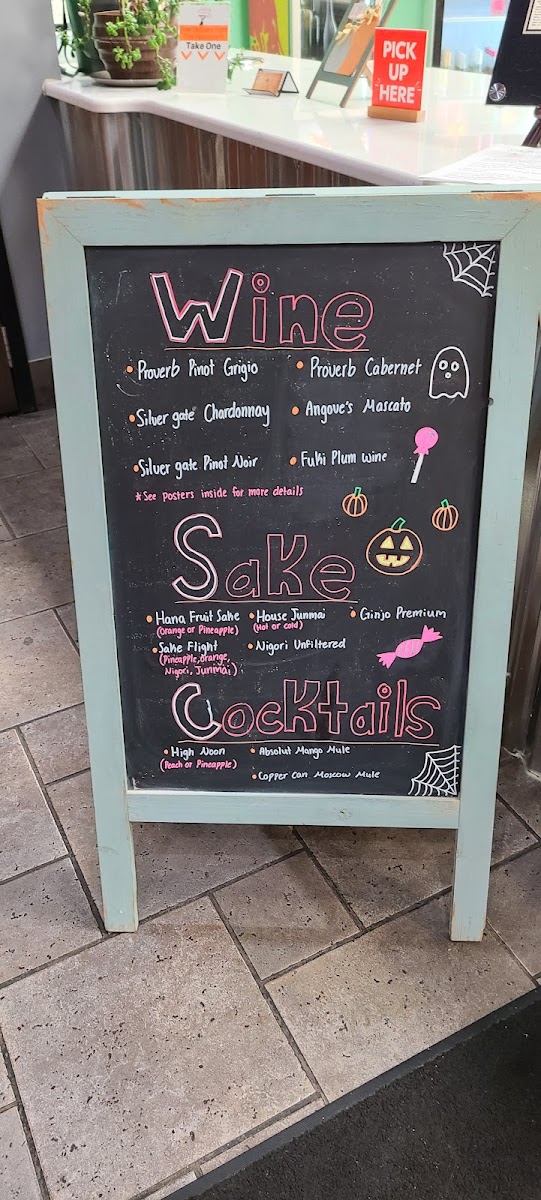 Take One
PICK
UP
HERE
Wine
• Proverb Pinot Grigio
• Proverb Cabernet
• Silver gate Chardonnay
• Angove's Mascato
• Silver gate Pinot Noir
• Fuki Plum wine
*See posters inside for more details
Sake
• Hana Fruit Sake
(Orange or Pineapple)
• House Junmai
(Hot or cold)
• Ginjo Premium
• Sake Flight
(Pineapple, orange,
Nigori, Junmai)
• Nigori Unfiltered
Cocktails
• High Noon
(Peach or Pineapple)
• Absolut Mango Mule
• Copper Can Moscow Mule